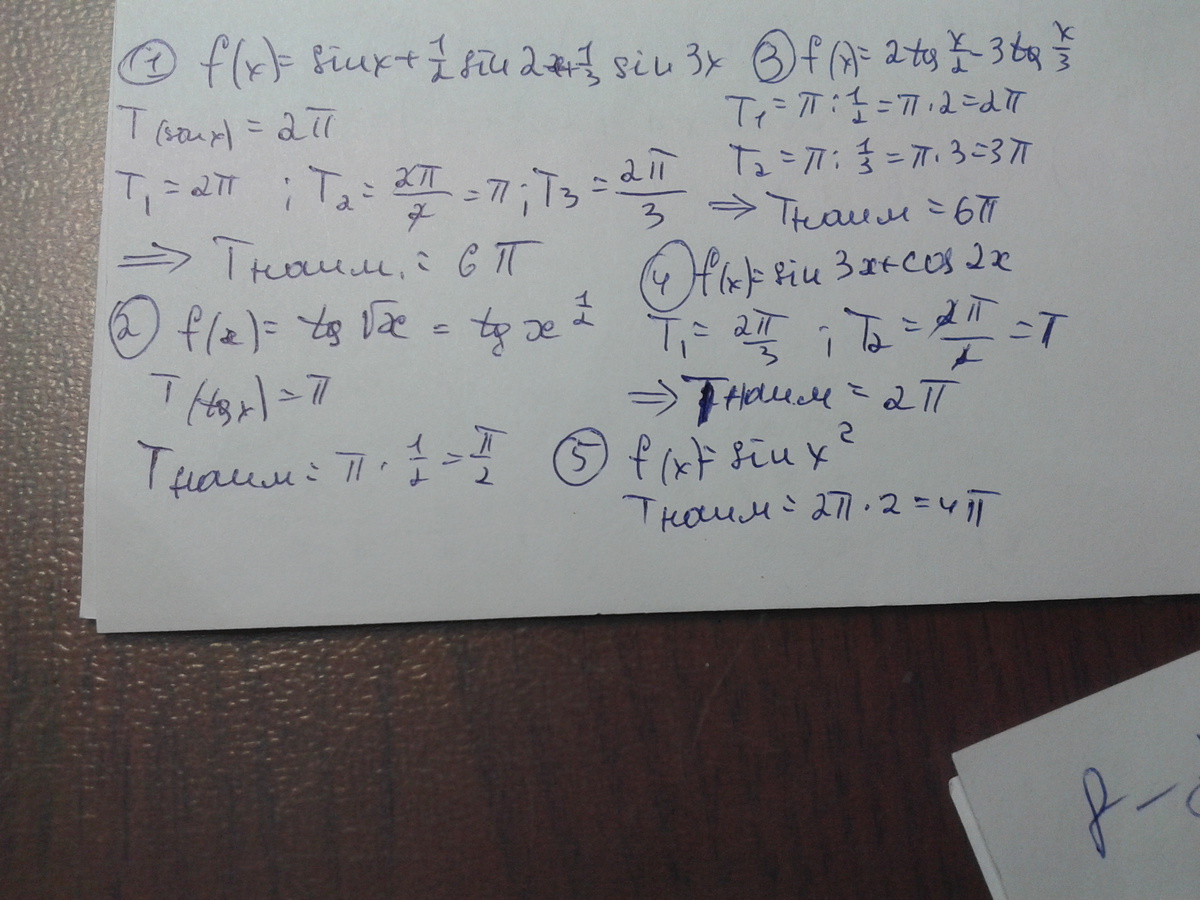 ① f(x)= sinx+ 1/2 sin 2x+ 1/3 sin 3x
T(sinx) = 2π
T₁ = 2π ; T₂ = 2π/2 = π ; T₃ = 2π/3
⇒ Tнаим. = 6π
② f(x)= tg √x = tg x^1/2
T(tgx) = π
Tнаим = π · 1/2 = π/2
③ f(x)= 2tg x/2 - 3tg x/3
T₁ = π : 1/2 = π · 2 = 2π
T₂ = π : 1/3 = π · 3 = 3π
⇒ Tнаим = 6π
④ f(x)= sin 3x+cos 2x
T₁ = 2π/3 ; T₂ = 2π/2 = π
⇒ Tнаим = 2π
⑤ f(x)= sin x²
Tнаим = 2π · 2 = 4π